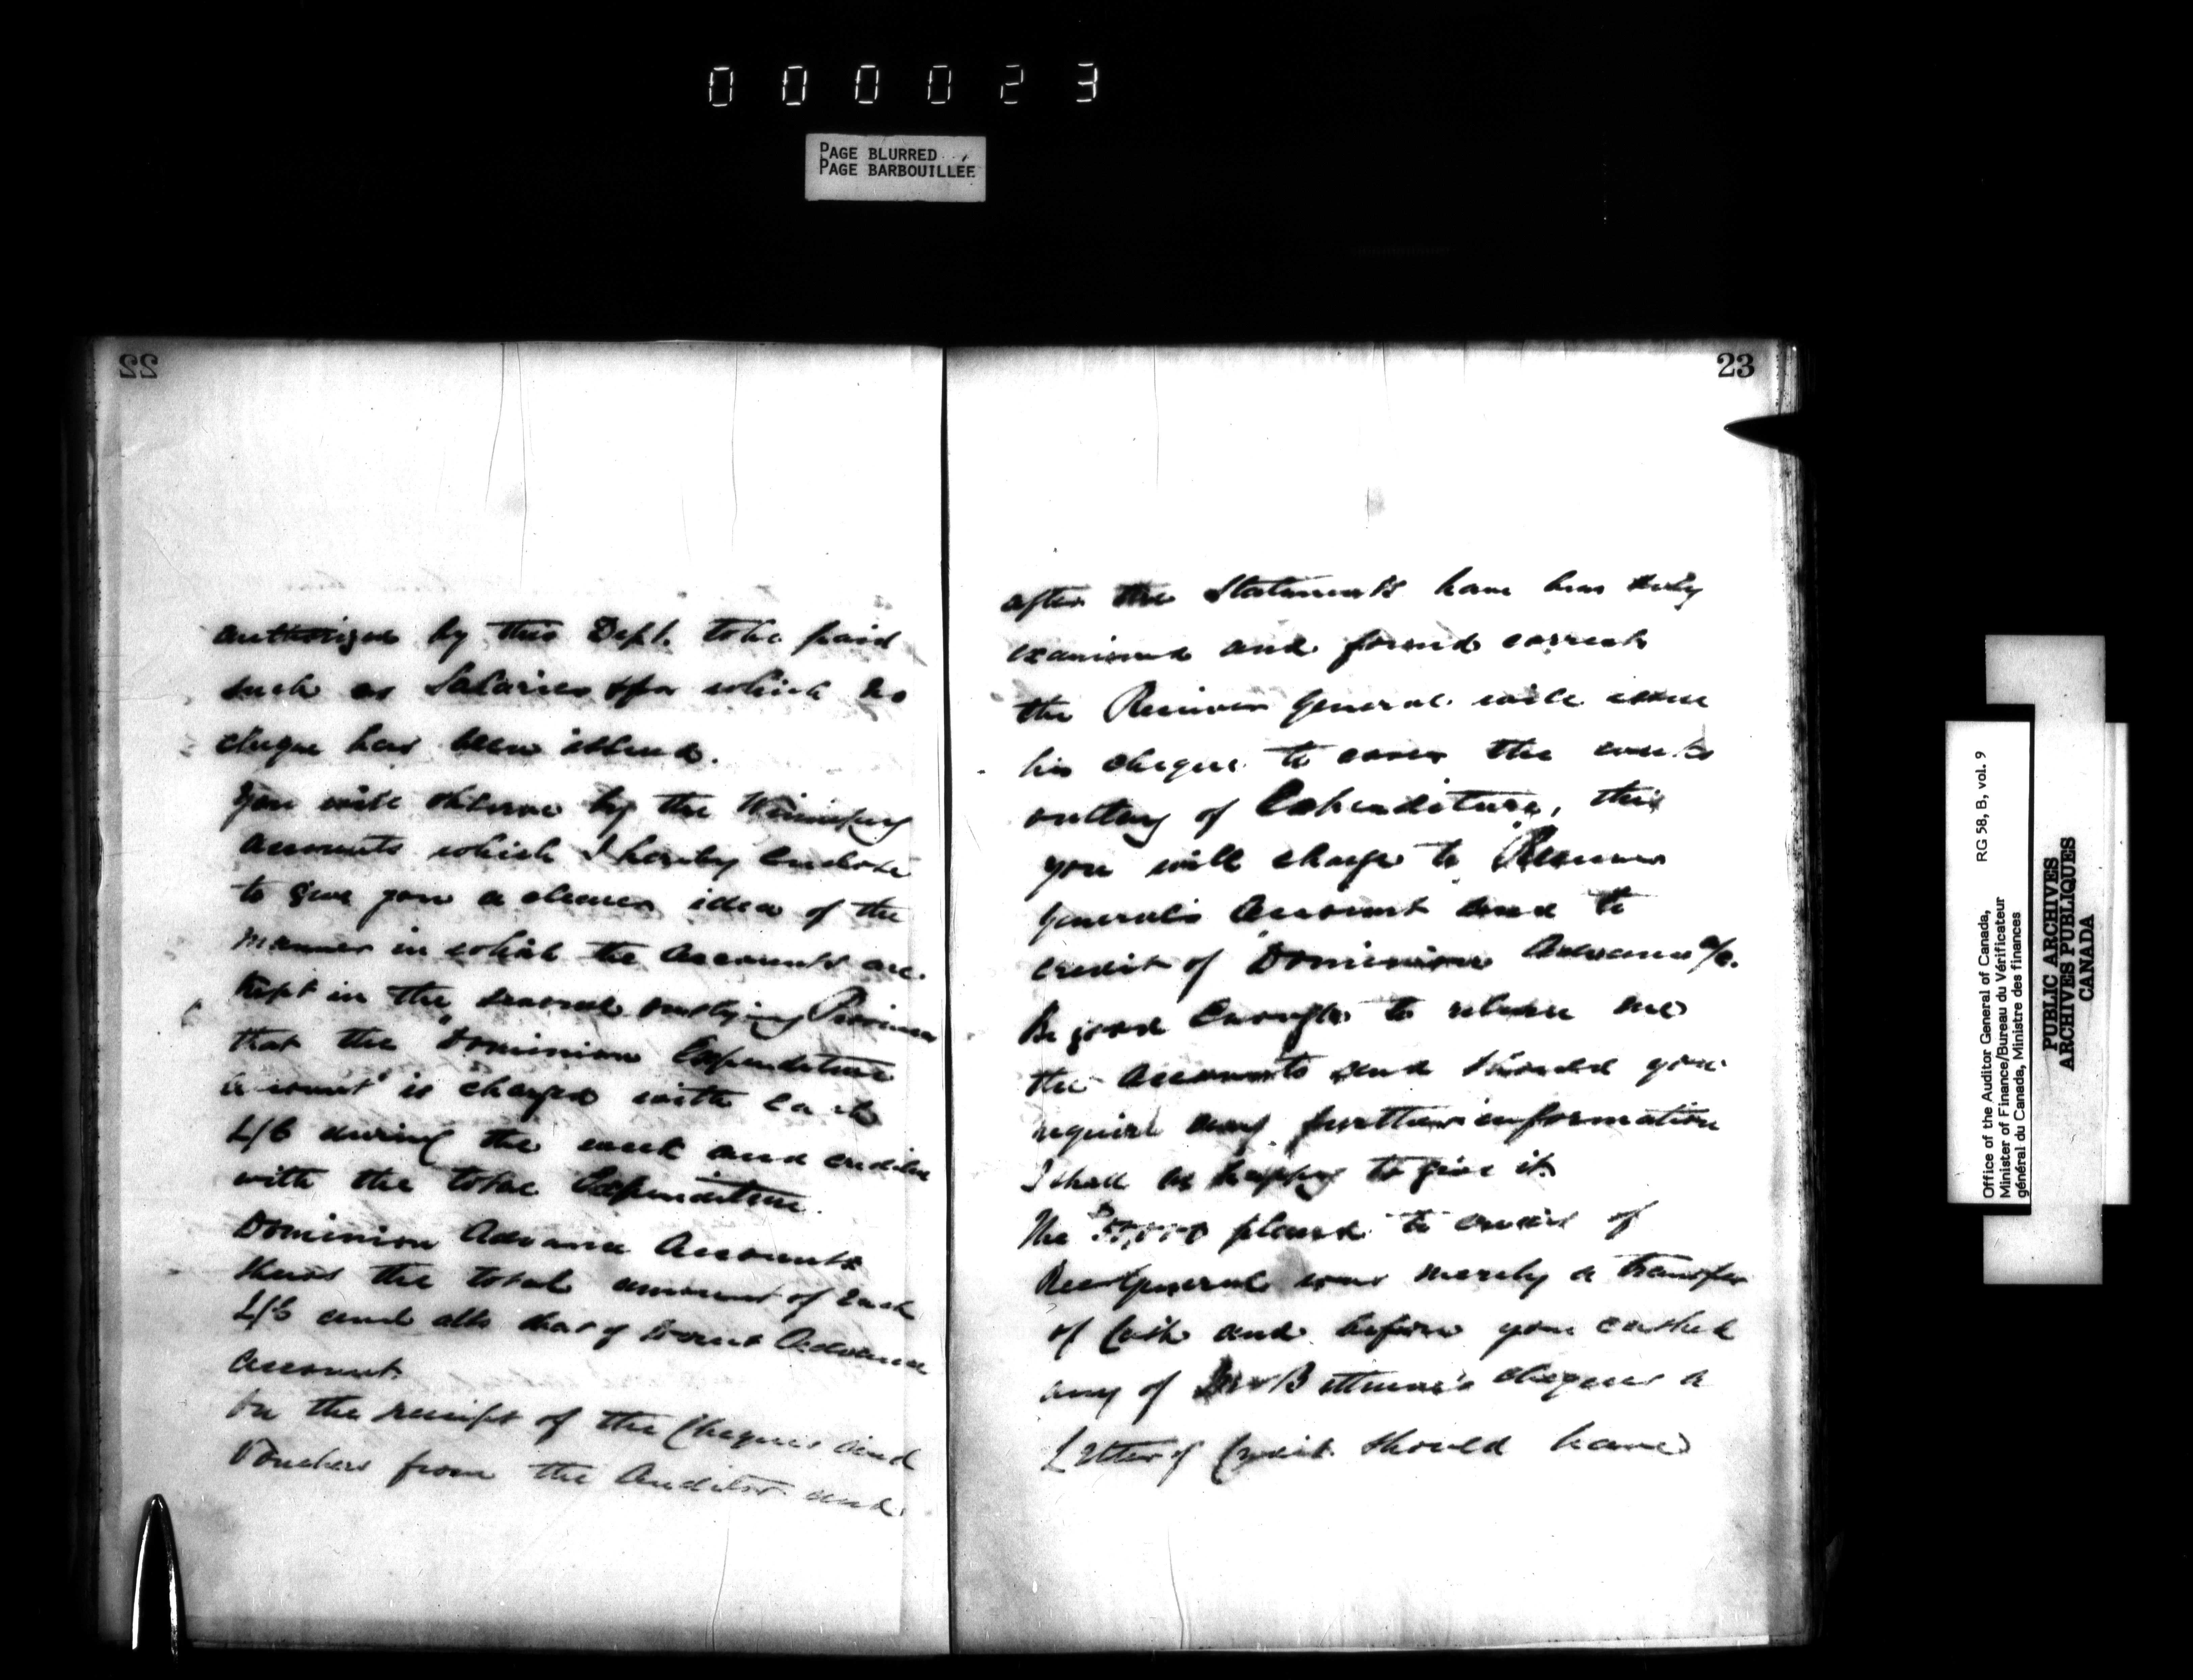 000023
PAGE BLURRED
PAGE BARBOUILLÉE
22
authorized by this Dept. to be paid
such as Salaries &for which no
cheque has been issued.
You will observe by the Winnipeg
accounts which I hereby enclose
to give you a clearer idea of the
manner in which the Accounts are
kept in the several outlying Provinces
that the "Dominion Expenditure
Account" is charged with each
L/C during the week and credited
with the total Expenditure.
Dominion Advance Accounts
shews the total amount of each
L/C and also that of Advance
Account.
On the receipt of the Cheques and
Vouchers from the Auditor and
23
after the Statements have been duly
examined and found correct
the Receiver General will issue
his cheque to cover the
outlay of Expenditure, this
you will charge to Receiver
General's Account and to
credit of "Dominion Advance a/c.
Be good enough to return me
the Accounts and should you
require any further information
I shall be happy to give it.
The placed to credit of
Rec General was merely a transfer
of Cash and before you cashed
any of cheques a
Letter of Credit should have
Office of the Auditor General of Canada, RG 58, B, vol. 9
Minister of Finance/Bureau du Vérificateur
général du Canada, Ministre des finances
PUBLIC ARCHIVES
ARCHIVES PUBLIQUES
CANADA